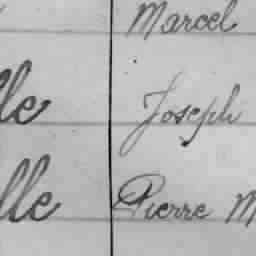 Marcel
lle Joseph
lle Pierre M